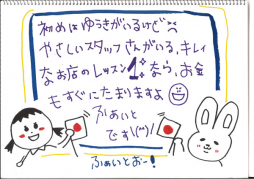 初めはゆうきがいるけど
やさしいスタッフさんがいる、キレイ
なお店のレッスン1なら、お金
もすぐにたまりますよ
ふぁいと
です\(^^)/
ふぁいとおー!